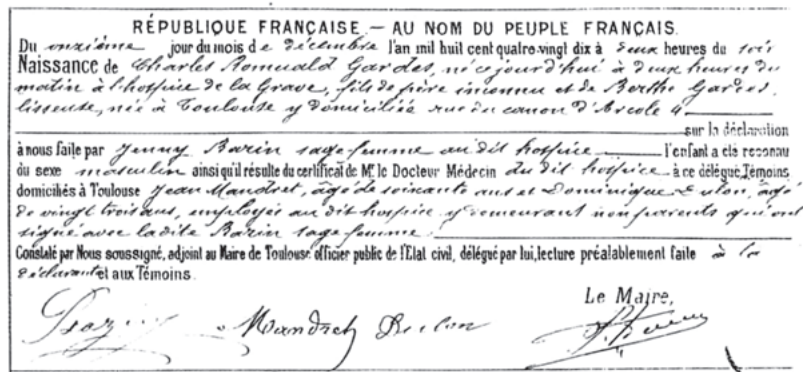 RÉPUBLIQUE FRANÇAISE — AU NOM DU PEUPLE FRANÇAIS.
Du onzième jour du mois de décembre l'an mil huit cent quatre-vingt dix à deux heures du soir
Naissance de Charles Romuald Gardes, né cejourd'hui à deux heures du
matin à l'hospice de la Grave, fils de père inconnu et de Berthe Gardes,
lisseuse, née à Toulouse y domiciliée rue du canon d'Arcole 4
sur la déclaration
à nous faite par Jenny Bazin sage-femme au dit hospice l'enfant a été reconnu
du sexe masculin ainsi qu'il résulte du certificat de Mr. le Docteur Médecin du dit hospice à ce délégué, Témoins
domiciliés à Toulouse Jean Mandret, âgé de soixante ans et Dominique Dulon, âgé
de vingt trois ans, employés au dit hospice y demeurant non parents qui ont
signé avec la dite Bazin sage-femme
Constaté par Nous soussigné, adjoint au Maire de Toulouse officier public de l'Etat civil, délégué par lui, lecture préalablement faite à la
déclarante et aux Témoins.
Le Maire,
Bazin Mandret Dulon